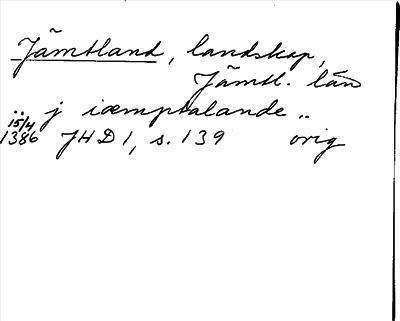 Jämtland, landskap,
Jämtl. län
.. j iæmptalande ..
15/4
1386 JHD 1, s. 139 orig